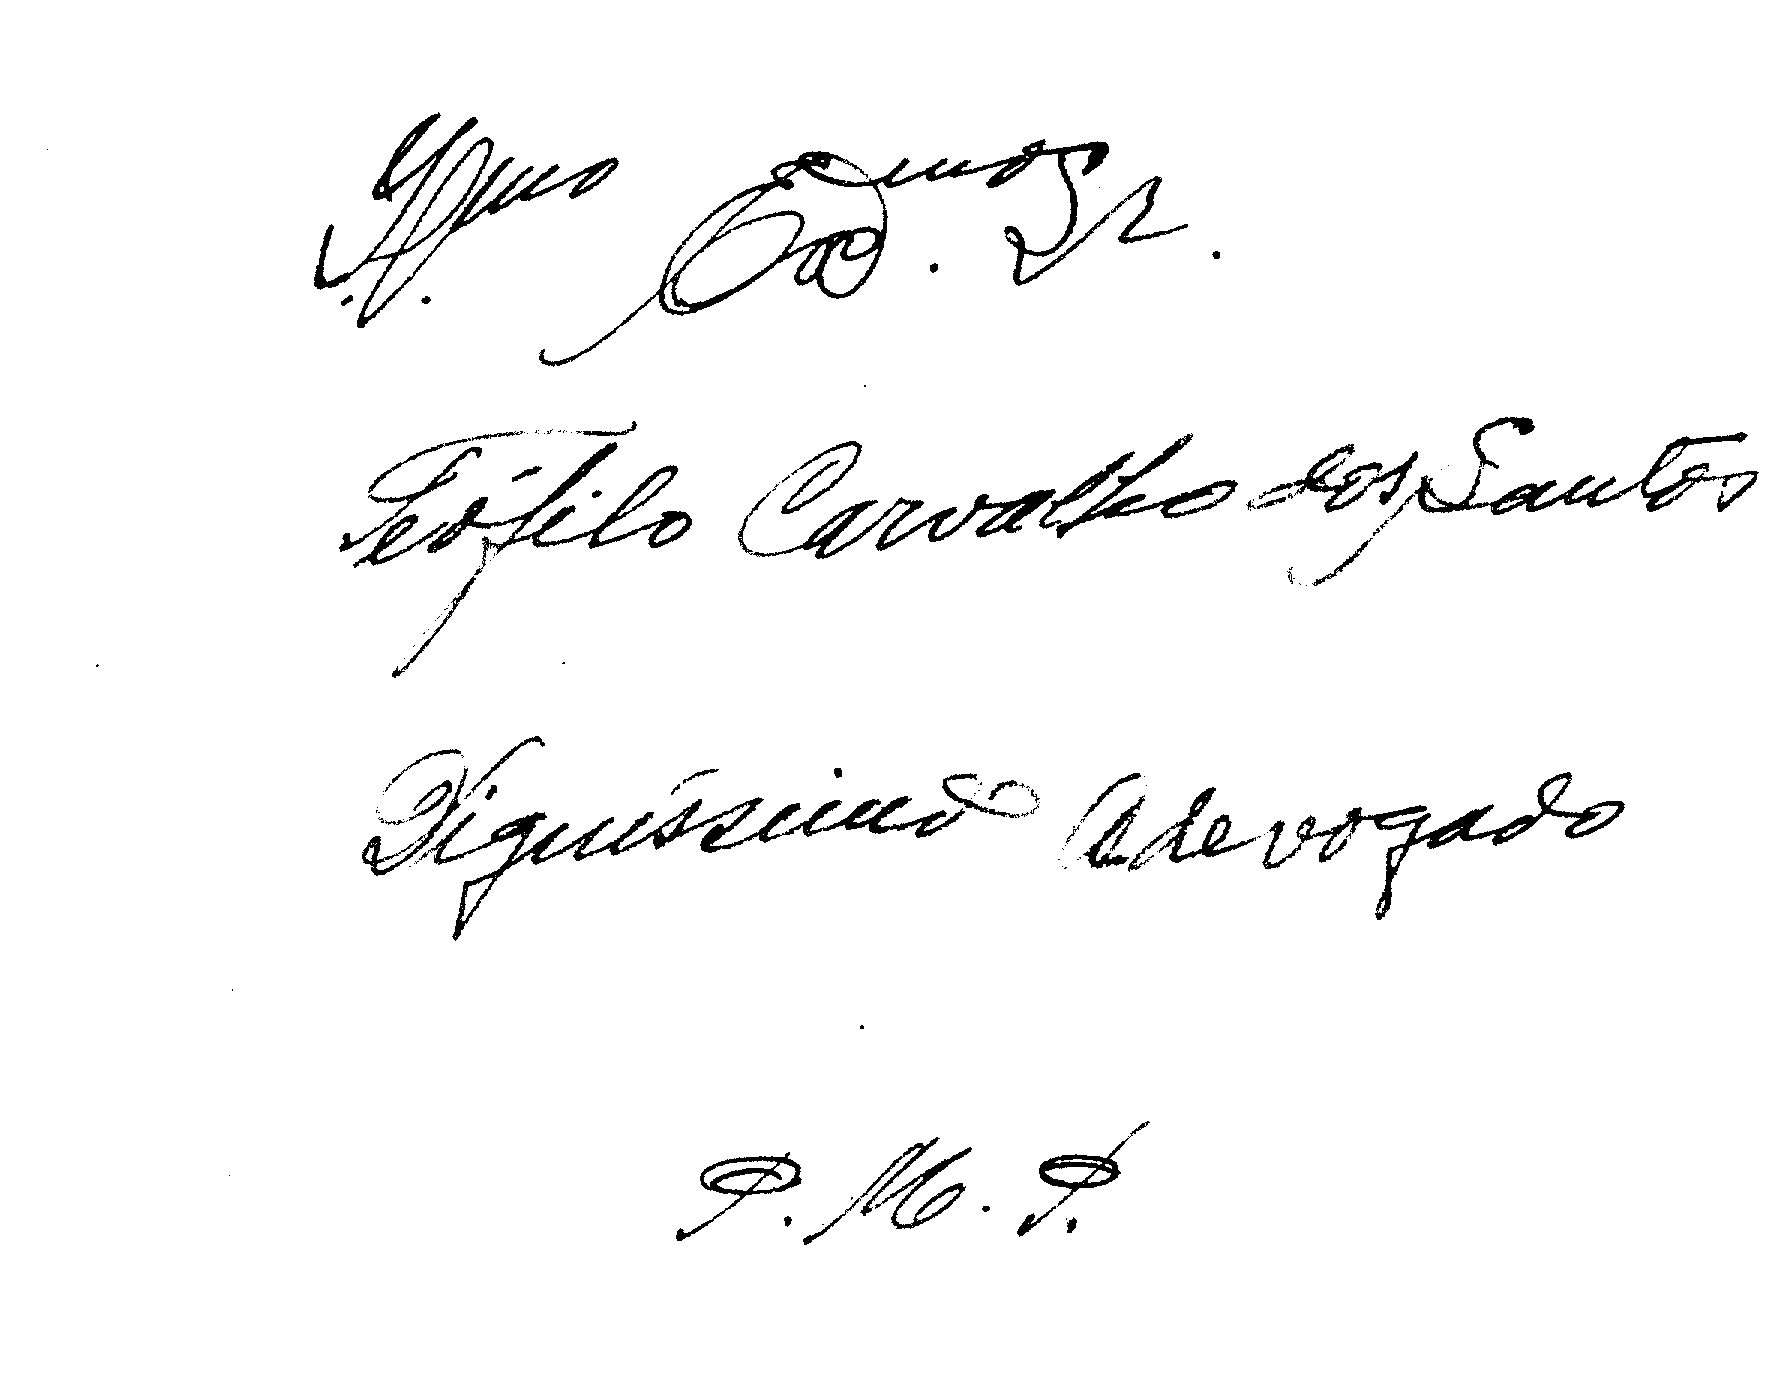 Ilmo Exmo. Sr.
Teófilo Carvalho dos Santos
Digníssimo Adevogado
P. M. P.